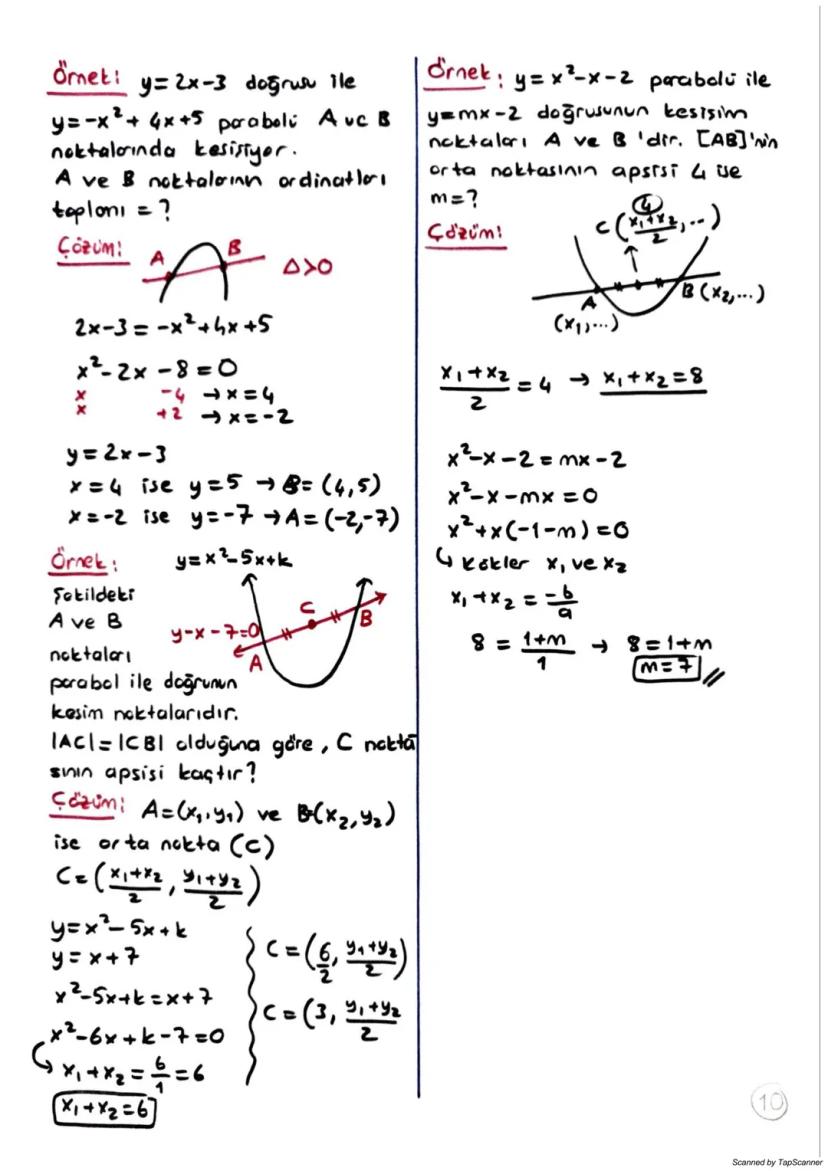 Örnek: y=2x-3 doğrusu ile
y=-x²+4x+5 parabolü A ve B
noktalarında kesişiyor.
A ve B noktalarının ordinatları
toplamı = ?
Çözüm:
A
B
Δ>0
2x-3=-x²+4x+5
x²-2x-8=0
x -4 →x=4
x +2 →x=-2
y=2x-3
x=4 ise y=5 →B=(4,5)
x=-2 ise y=-7 →A=(-2,-7)
Örnek:
y=x²-5x+k
Şekildeki
A ve B
noktaları
parabol ile doğrunun
kesim noktalarıdır.
y-x-7=0
A
C
B
|AC|=|CB| olduğuna göre, C nokta
sının apsisi kaçtır?
Çözüm: A=(x₁,y₁) ve B(x₂,y₂)
ise orta nokta (C)
C=(x₁+x₂/2, y₁+y₂/2)
y=x²-5x+k
y=x+7
x²-5x+k=x+7
x²-6x+k-7=0
x₁+x₂=6/1=6
x₁+x₂=6
C=(6/2, y₁+y₂/2)
C=(3, y₁+y₂/2
Örnek: y=x²-x-2 parabolü ile
y=mx-2 doğrusunun kesişim
noktaları A ve B'dir. [AB]'nin
orta noktasının apsisi 4 ise
m=?
Çözüm:
4
C(x₁+x₂/2,...)
A
(x₁,...)
B(x₂,...)
x₁+x₂/2=4 → x₁+x₂=8
x²-x-2=mx-2
x²-x-mx=0
x²+x(-1-m)=0
↳ Kökler x₁ ve x₂
x₁+x₂=-b/a
8=1+m/1 → 8=1+m
m=7
10
Scanned by TapScanner